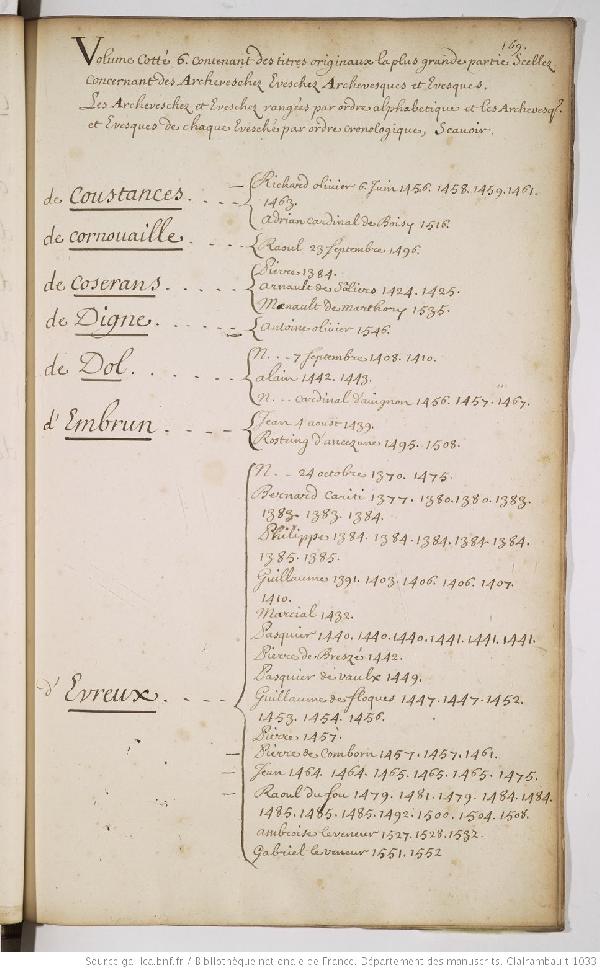 169.
Volume Cotté 6. contenant des titres originaux la plus grande partie Scellez
concernant des Archeveschez Eveschez Archevesques et Evesques.
Les Archeveschez et Eveschez rangées par ordre alphabetique et les Archevesq.
et Evesques de chaque Evesché par ordre cronologique, Scavoir.
de Coustances. Richard olivier 6. Juin 1456. 1458. 1459. 1461.
1463.
Adrian cardinal de Boisy 1516.
de cornouaille. Raoul 23 septembre 1496.
de Coserans. Pierre 1384.
arnault de 1424. 1425.
Menault de marthory 1535.
de Digne. Antoine olivier 1546.
de Dol. N. .. 7 septembre 1408. 1410.
alain 1442. 1443.
N. .. cardinal d'avignon 1456. 1457. 1467.
d'Embrun Jean 4 aoust 1439.
Rostaing d'ancezune 1495. 1508.
d'Evreux. N. .. 24 octobre 1370. 1475.
Bernard cariti 1377. 1380. 1380. 1383.
1383. 1383. 1384.
Philippe 1384. 1384. 1384. 1384. 1384.
1385. 1385.
Guillaume 1391. 1403. 1406. 1406. 1407.
1410.
Marcial 1432.
Pasquier 1440. 1440. 1440. 1441. 1441. 1441.
Pierre de Breszé 1442.
Pasquier de vaulx 1449.
Guillaume de floques 1447. 1447. 1452.
1453. 1454. 1456.
Pierre 1457.
Pierre de Comborn 1457. 1457. 1461.
Jean 1464. 1464. 1465. 1465. 1465. 1475.
Raoul du fou 1479. 1481. 1479. 1484. 1484.
1485. 1485. 1485. 1492. 1500. 1504. 1508.
ambroise le veneur 1527. 1528. 1532.
Gabriel le veneur 1551. 1552
Source gallica.bnf.fr / Bibliothèque nationale de France. Département des manuscrits. Clairambault 1033